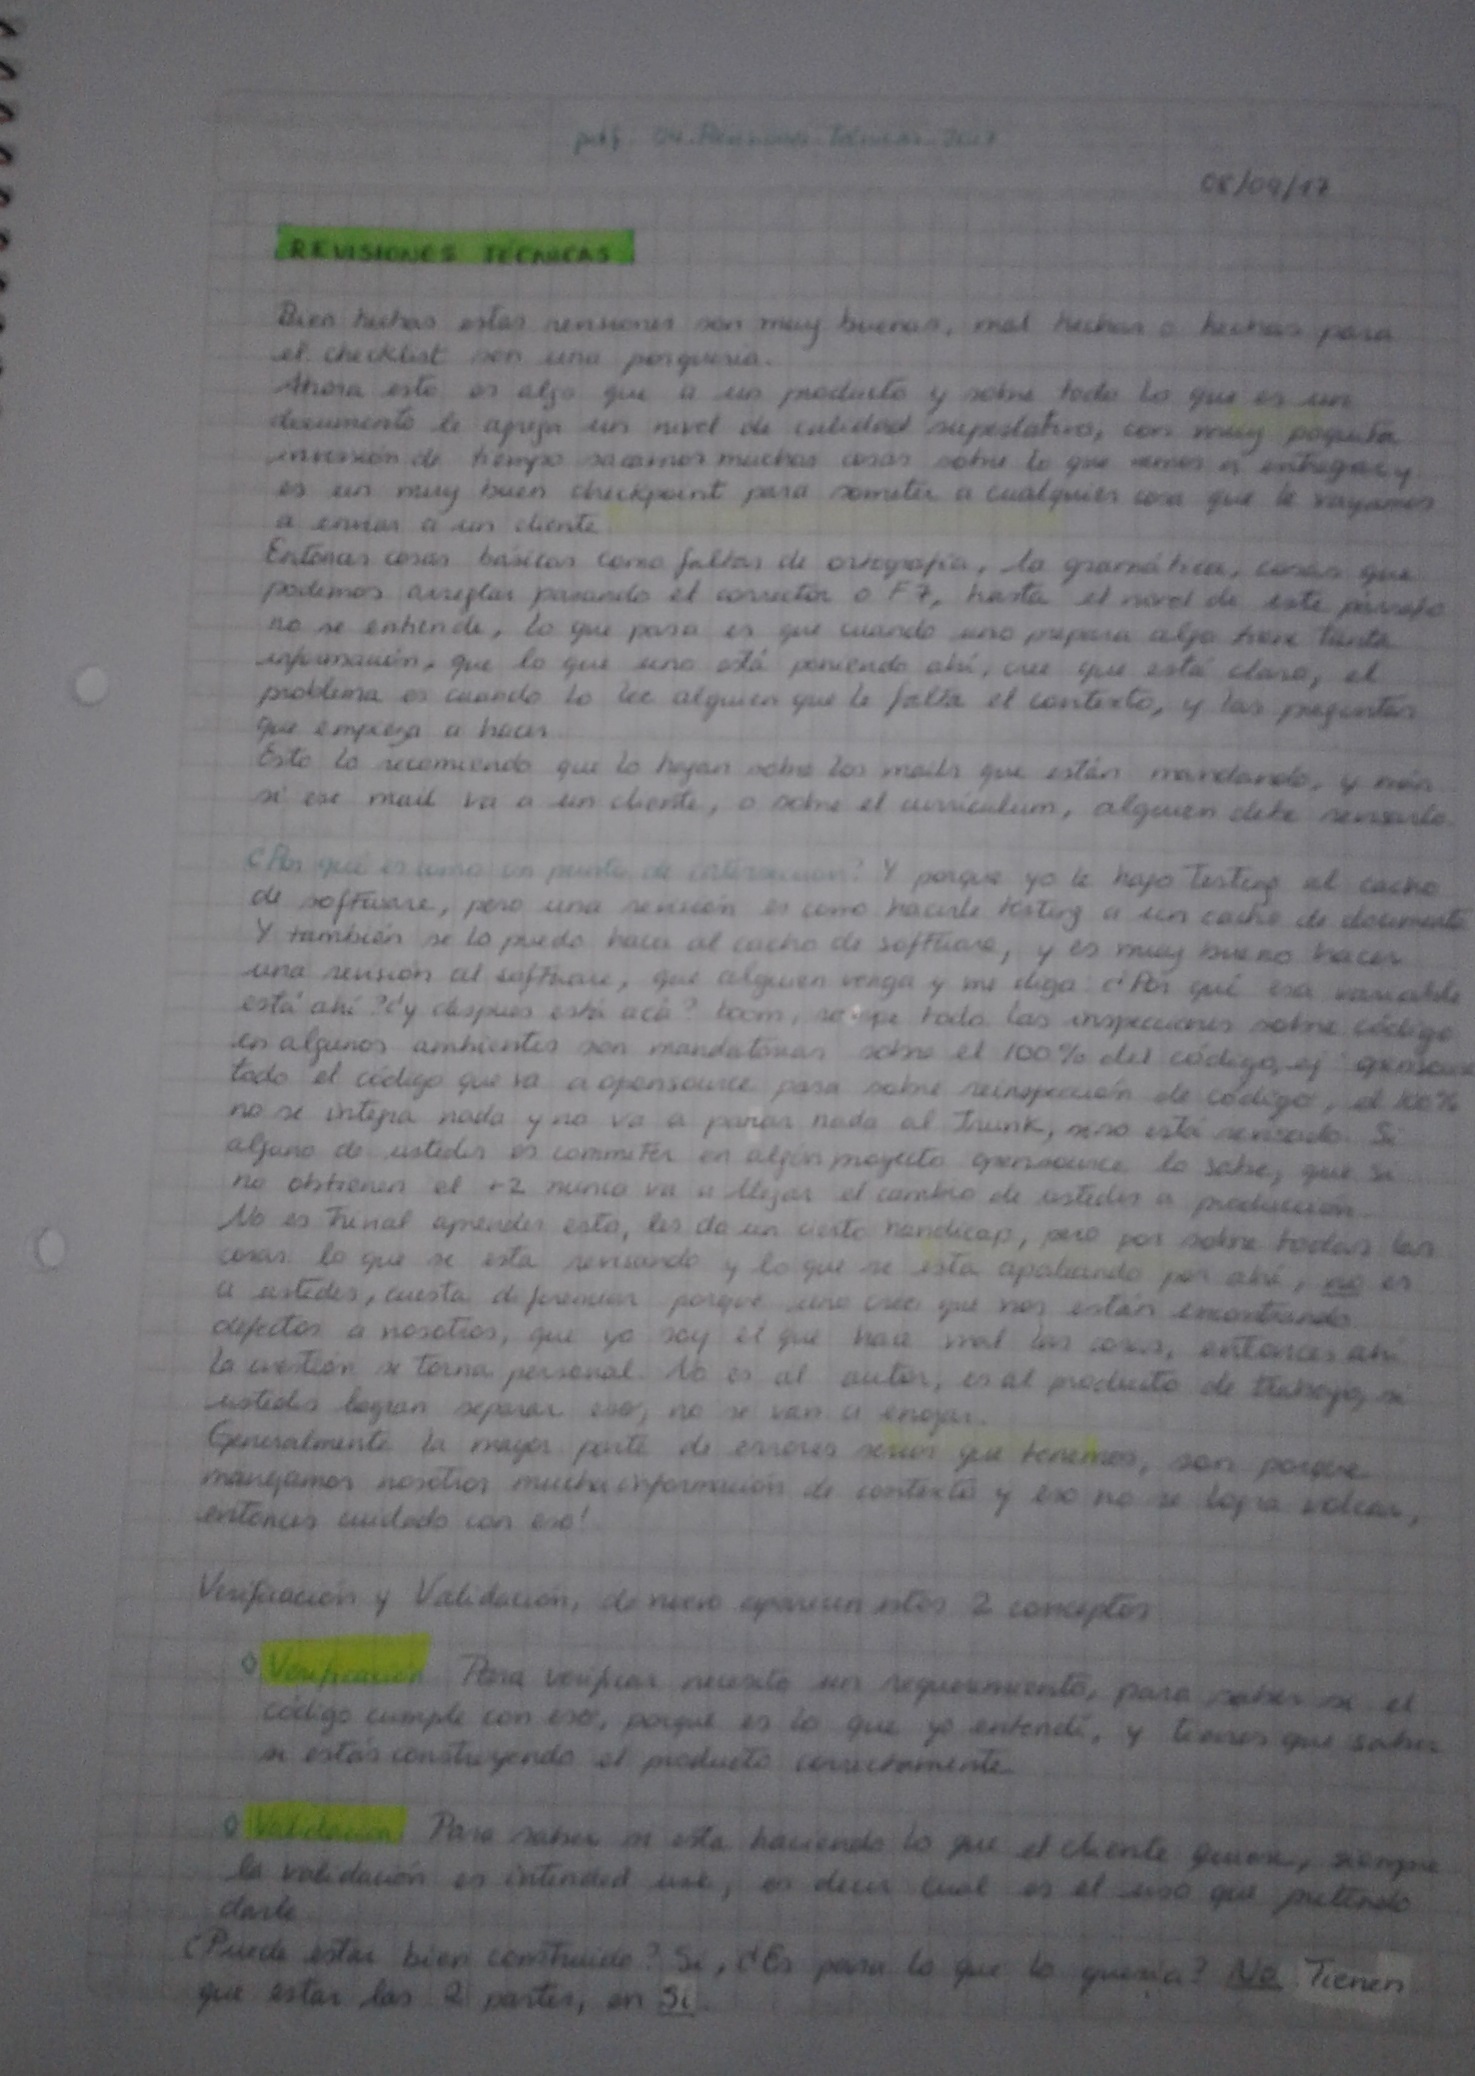 pdf. 04. Revisiones Técnicas 2017
08/09/17
REVISIONES TECNICAS
Bien hechas estas revisiones son muy buenas, mal hechas o hechas para
el checklist son una porqueria.
Ahora esto es algo que a un producto y sobre todo lo que es un
documento le agrega un nivel de calidad superlativo, con muy poquita
inversión de tiempo sacamos muchas cosas sobre lo que vamos a entregar y
es un muy buen checkpoint para someter a cualquier cosa que le vayamos
a enviar a un cliente
Entonces cosas básicas como faltas de ortografía, la gramática, cosas que
podemos arreglar pasando el corrector o F7, hasta el nivel de este párrafo
no se entiende, lo que pasa es que cuando uno prepara algo tiene tanta
información, que lo que uno está poniendo ahí, cree que está claro, el
problema es cuando lo lee alguien que le falta el contexto, y las preguntas
que empieza a hacer
Esto lo recomiendo que lo hagan sobre los mails que están mandando, y más
si ese mail va a un cliente, o sobre el curriculum, alguien debe revisarlo
¿Por qué es como un punto de intersección? Y porque yo le hago Testing al cacho
de software, pero una revisión es como hacerle testing a un cacho de documento
Y también se lo puedo hacer al cacho de software, y es muy bueno hacer
una revisión al software, que alguien venga y me diga ¿Por qué esa variable
está ahí? ¿y después está acá? boom, rompe todo las inspecciones sobre código
en algunos ambientes son mandatorias sobre el 100% del código, ej: opensource
todo el código que va a opensource pasa sobre reinspección de código, el 100%
no se integra nada y no va a pasar nada al Trunk, sino está revisado. Si
alguno de ustedes es commiter en algún proyecto opensource lo sabe, que si
no obtienen el +2 nunca va a llegar el cambio de ustedes a producción
No es trivial aprender esto, les da un cierto handicap, pero por sobre todas las
cosas lo que se esta revisando y lo que se esta apaleando por ahí, no es
a ustedes, cuesta diferenciar porque uno cree que nos están encontrando
defectos a nosotros, que yo soy el que hace mal las cosas, entonces ahí
la cuestión se torna personal. No es al autor, es al producto de trabajo, si
ustedes logran separar eso, no se van a enojar.
Generalmente la mayor parte de errores serios que tenemos, son porque
manejamos nosotros mucha información de contexto y eso no se logra volcar,
entonces cuidado con eso!
Verificación y Validación, de nuevo aparecen estos 2 conceptos
◊ Verificación Para verificar necesito un requerimiento, para saber si el
código cumple con eso, porque es lo que yo entendí, y tienes que saber
si estás construyendo el producto correctamente
◊ Validación Para saber si esta haciendo lo que el cliente quiere, siempre
la validación es intended use, es decir cual es el uso que pretendo
darle
¿Puede estar bien construido? Si, ¿Es para lo que lo quería? No. Tienen
que estar las 2 partes, en Si.